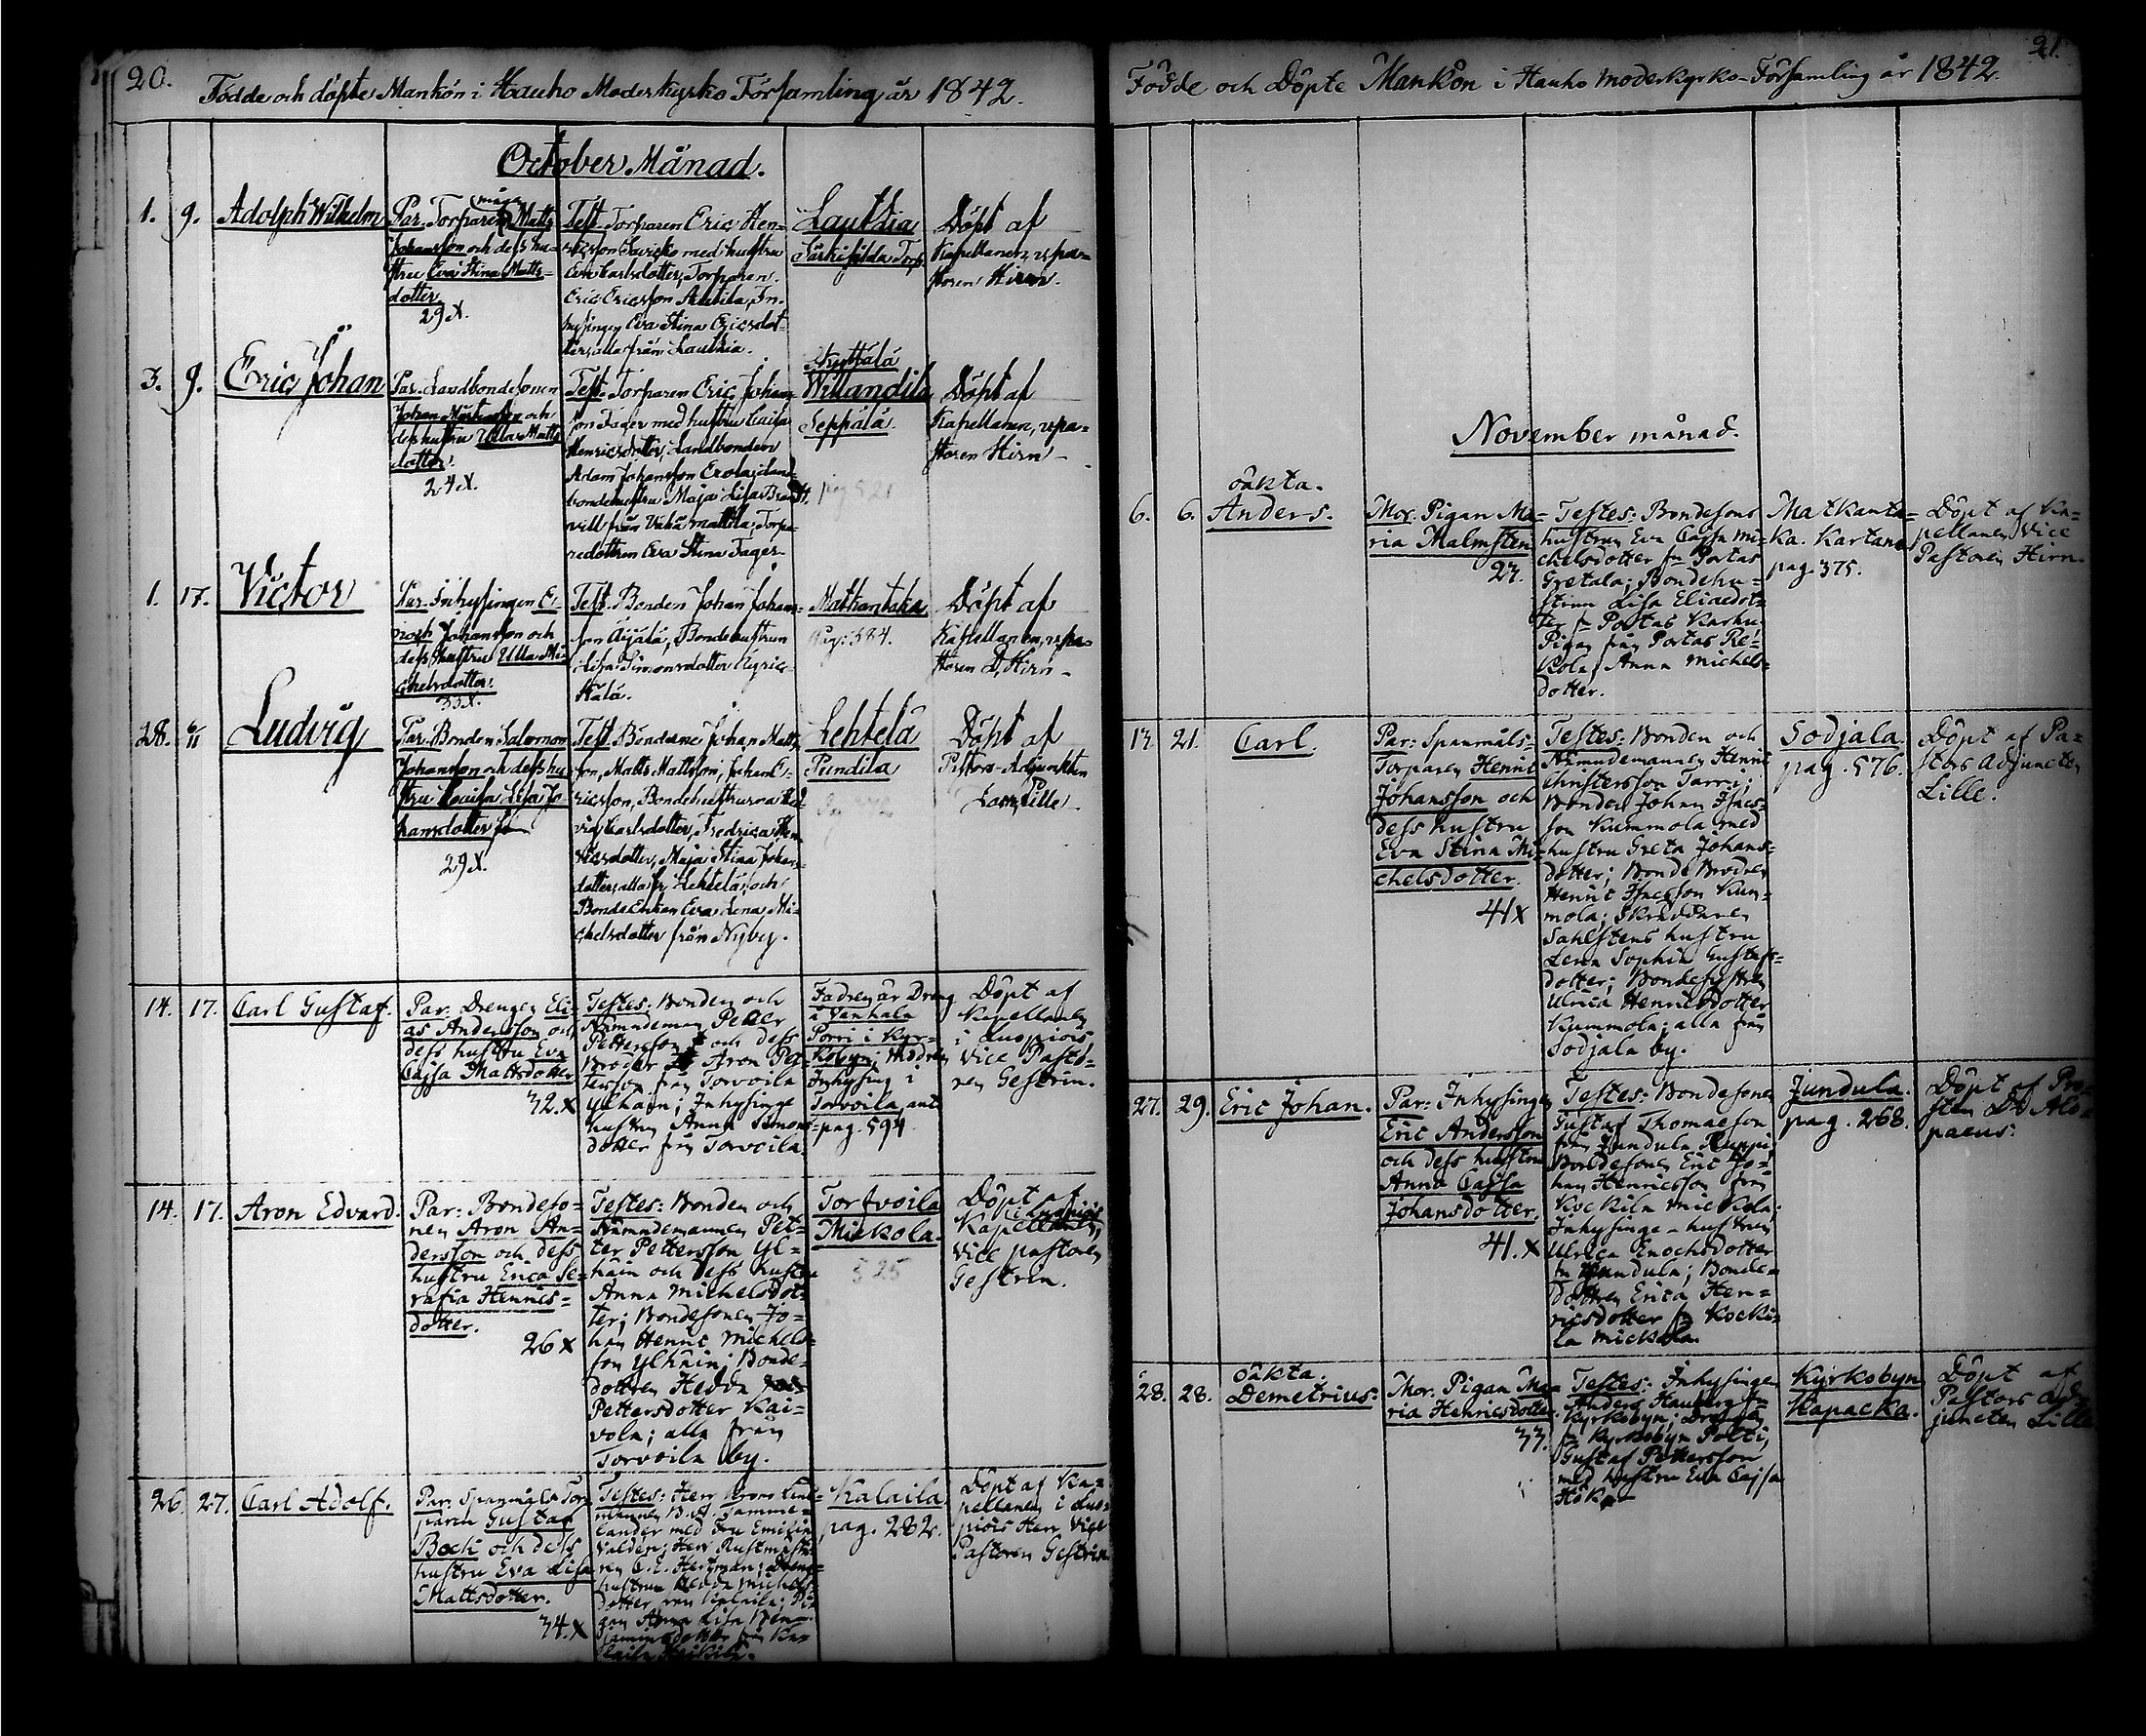 20.
Födde och döpte Mankön i Hauho Moderkyrko Församling år 1842.
October Månad.
1. 9. Adolph Wilhelm
Par. Torparen måga Matts
Johansson och dess hu-
stru Eva Stina Matts-
dotter
29 X.
Test. Torparen Eric Hen-
ricsson med hustru
Eva Carlsdotter, Torparen
Eric Ericsson Anttila, In-
hysingen Eva Stina Ericsdot-
ter, alla från Lautsia.
Lautsia
Torp
Döpt af
Kapellanen, v. pa-
storen Hirn.
3. 9. Eric Johan
Par. Landbondesonen
Johan och
dess hustru Ulla Matts
dotter.
24 X.
Test. Torparen Eric Johans-
son Fager med hustru Caisa
Henricsdotter, Landbonden
Adam Johansson Erola, Land-
bondehustru Maja Lisa
från Torpa-
redottren Eva Stina Fager
Nyttälä
Wittandila
Seppälä.
Döpt af
Kapellanen, v. pa-
storen Hirn
1. 17. Victor
Par. Inhysingen E-
noch Johansson och
dess hustru Ulla Mi-
chelsdotter.
33 X.
Test. Bonden Johan Johans-
son Äijälä, Bondehustrun
Lisa Simonsdotter
Matkantaka
Pag: 384.
Döpt af
Kapellanen, v. pa-
storen D. Hirn
28. 6/11 Ludvig
Par. Bonden Salomon
Johansson och dess hu-
stru Lovisa Lisa Jo-
hansdotter
29 X.
Test. Bönderne Johan Matts-
son, Matts Mattsson, Johan E-
ricsson, Bondehustrurna Hed-
vig Carlsdotter, Fredrica Hen-
ricsdotter, Maja Stina Johans-
dotter, alla fr. Lehtelä, och
Bonde Enkan Eva Lena Mi-
chelsdotter från Nyby.
Lehtelä
Pundila
Döpt af
Pastors-Adjunkten
Lille
14. 17. Carl Gustaf.
Par: Drengen Eli-
as Andersson och
dess hustru Eva
Cajsa Mattsdotter
32. X
Testes: Bonden och
Nämndeman Petter
Pettersson och dess
Broder Aron Pet-
tersson från Torvoila
Ylhäin; Inhysinge
hustrun Anna Simons-
dotter från Torvoila.
Fadren är Dreng
i Janhala
Porri i Kyr-
kobyn; Modren
Inhysing i
Torvoila, ant.
pag. 594
Döpt af
Kapellanen
i Luopiois,
Vice Pasto-
ren Gestrin.
14. 17. Aron Edvard.
Par: Bondeso-
nen Aron An-
dersson och dess
hustru Erica Se-
rafia Henrics-
dotter.
26 X
Testes: Bonden och
Nämndemannen Pet-
ter Pettersson Yl-
häin och dess hustru
Anna Michelsdot-
ter; Bondesonen Jo-
han Henric Michels-
son Ylhäin; Bonde-
dottren Hedda
Pettersdotter Kai-
vola; alla från
Torvoila by.
Torfvoila
Mickola.
525
Döpt af
i Luopiois
Kapellanen,
Vice pastoren
Gestrin.
26. 27. Carl Adolf.
Par: Spanmåls Tor-
paren Gustaf
Beck och dess
hustru Eva Lisa
Mattsdotter.
34. X
Testes: Herr Krono Läns-
mannen B. A. Tamme-
lander med Fru Emilia
Valden; Herr Rustmästa-
ren C. E. Hertman; Dreng-
hustrun Hedda Michels-
dotter från Kalaila; Pi-
gan Anna Lisa Ben-
jaminsdotter från Ka-
laila
Kalaila
pag. 282.
Döpt af Ka-
pellanen i Luo-
piois Herr Vice
Pastoren Gestrin
21.
Födde och Döpte Mankön i Hauho Moderkyrko-Församling år 1842.
November månad.
6. 6. oäkta.
Anders.
Mor. Pigan Ma-
ria Malmsten
27.
Testes: Bondesons
hustrun Eva Cajsa Mi-
chelsdotter fr. Portas
Gretala; Bondehu-
strun Lisa Eliaedot-
ter fr. Portas Karhu
Pigan från Portas Re-
kola, Anna Michels-
dotter.
Matkanta-
ka. Kartano
pag. 375.
Döpt af Ka-
pellanen Vice
Pastoren Hirn.
17. 21. Carl.
Par: Spanmåls-
Torparen Henric
Johansson och
dess hustru
Eva Stina Mi-
chelsdotter.
41 X
Testes: Bonden och
Nämndemannen Henric
Christersson Tarri;
Bonden Johan Isacs-
son Kummola med
hustru Greta Johans-
dotter; Bonde Brodren
Henric Isacsson Kum-
mola; Skräddaren
Sahlstens hustru
Lena Sophia Gustafs-
dotter; Bondesystren
Ulrica Henricsdotter
Kummola; alla från
Sodjala by.
Sodjala
pag. 576.
Döpt af Pa-
stors Adjuncten
Lille.
27. 29. Eric Johan.
Par: Inhysingen
Eric Andersson
och dess hustru
Anna Cajsa
Johansdotter.
41. X
Testes: Bondesonen
Gustaf Thomaesson
från Jundula Ruppi,
Bondesonen Eric Jo-
han Henricsson från
Kockila Mickola;
Inhysinge-hustrun
Ulrica Enochsdotter
fr. Jundula; Bonde-
dottren Erica Hen-
ricsdotter fr. Kocki-
la Mickola.
Jundula.
pag. 268.
Döpt af Pro-
sten Dr Alo-
paeus.
28. 28. oäkta.
Demetrius:
Mor. Pigan Ma-
ria Henricsdotter.
33.
Testes: Inhysingen
Anders Hauberg fr.
Kyrkobyn; Drengen
fr. Kyrkobyn Potti,
Gustaf Pettersson
med hustru Eva Cajsa
Hök
Kyrkobyn
Kapacka.
Döpt af
Pastors Ad-
juncten Lille